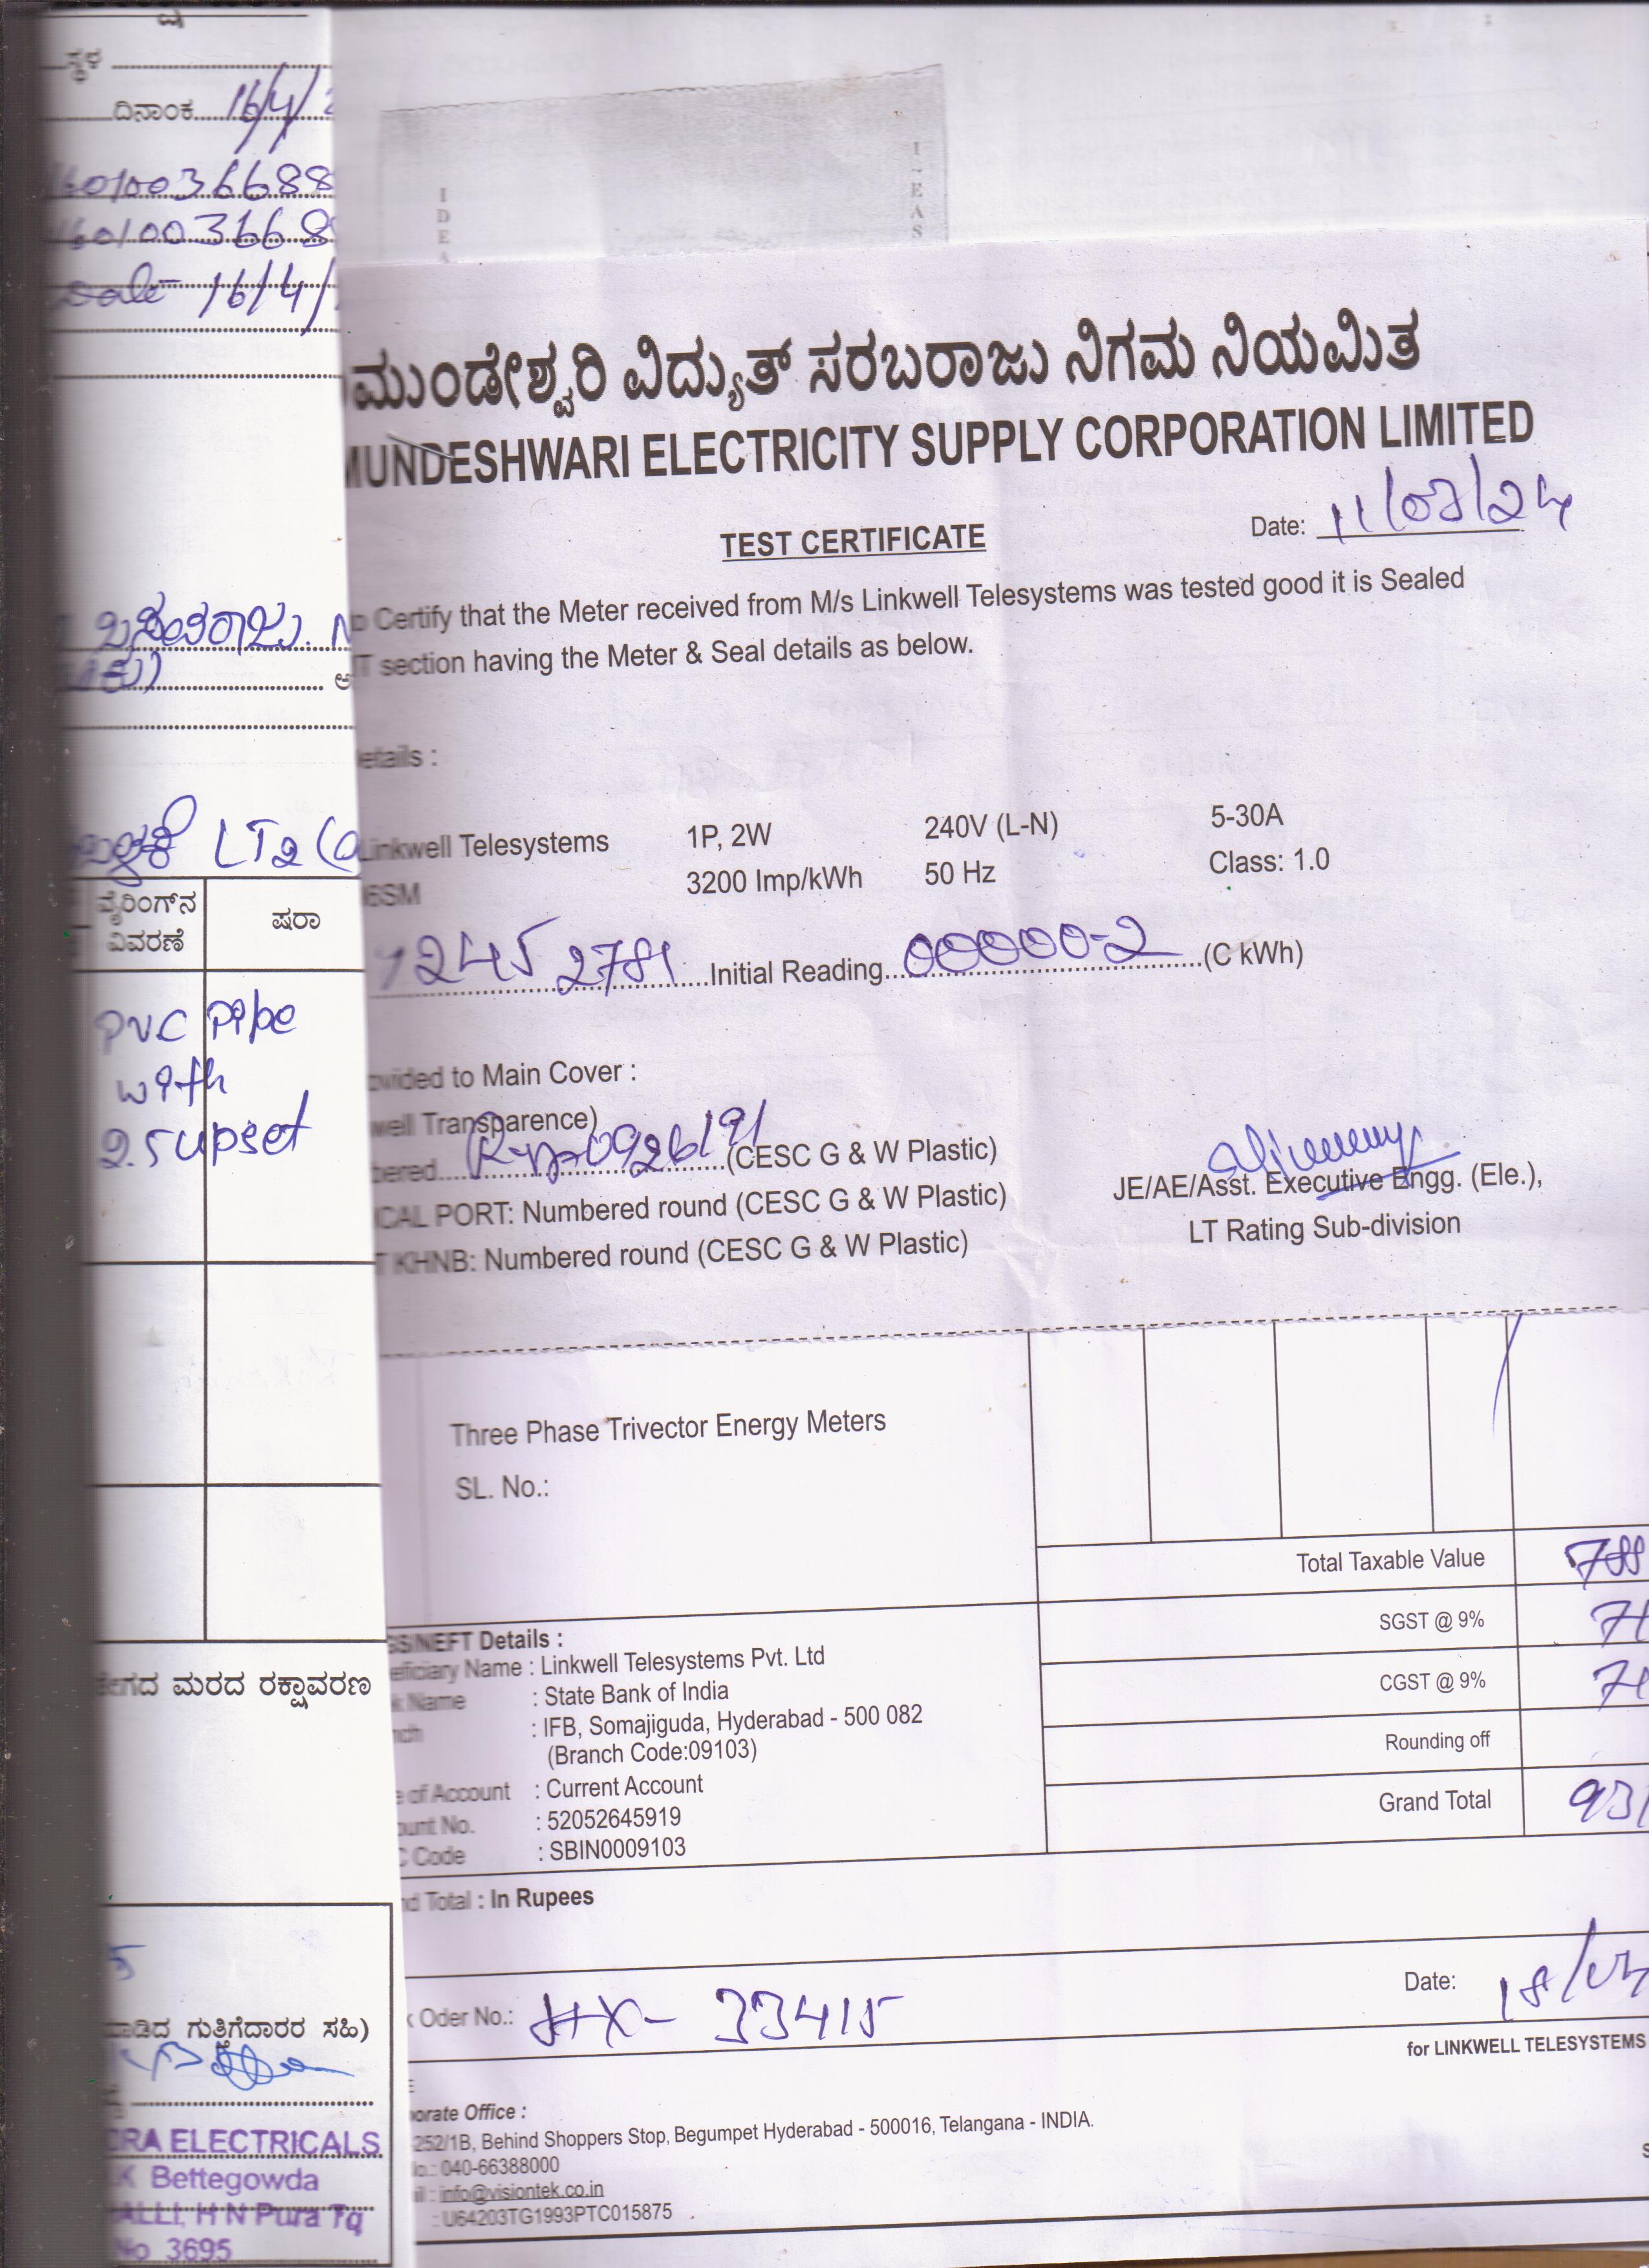 ಸ್ಥಳ
ದಿನಾಂಕ 16/4/
6010036688
601003668
Date 16/4/
ಬಸವರಾಜು
LT2
ವೈರಿಂಗ್‌ನ ವಿವರಣೆ ಷರಾ
PVC Pipe
with
2.5 upset
ಮರದ ರಕ್ಷಾವರಣ
ಗುತ್ತಿಗೆದಾರರ ಸಹಿ)
ORA ELECTRICALS
K Bettegowda
ALLI, H N Pura Tq
No 3695
I D E A
ಮುಂಡೇಶ್ವರಿ ವಿದ್ಯುತ್ ಸರಬರಾಜು ನಿಗಮ ನಿಯಮಿತ
MUNDESHWARI ELECTRICITY SUPPLY CORPORATION LIMITED
TEST CERTIFICATE
Date: 11/07/24
o Certify that the Meter received from M/s Linkwell Telesystems was tested good it is Sealed
T section having the Meter & Seal details as below.
etails :
Linkwell Telesystems 1P, 2W 240V (L-N) 5-30A
6SM 3200 Imp/kWh 50 Hz Class: 1.0
2452781 Initial Reading 00000-2 (C kWh)
ovided to Main Cover :
well Transparence)
bered 0926191 (CESC G & W Plastic)
ICAL PORT: Numbered round (CESC G & W Plastic)
T KHNB: Numbered round (CESC G & W Plastic)
JE/AE/Asst. Executive Engg. (Ele.),
LT Rating Sub-division
Three Phase Trivector Energy Meters
SL. No.:
Total Taxable Value 788
SGST @ 9% 71
CGST @ 9% 71
Rounding off
Grand Total 931
GS/NEFT Details :
eficiary Name : Linkwell Telesystems Pvt. Ltd
k Name : State Bank of India
nch : IFB, Somajiguda, Hyderabad - 500 082
(Branch Code:09103)
e of Account : Current Account
ount No. : 52052645919
C Code : SBIN0009103
nd Total : In Rupees
k Oder No.: HX- 33415
Date: 18/07
for LINKWELL TELESYSTEMS
orate Office :
252/1B, Behind Shoppers Stop, Begumpet Hyderabad - 500016, Telangana - INDIA.
lo.: 040-66388000
il : info@visiontek.co.in
: U64203TG1993PTC015875